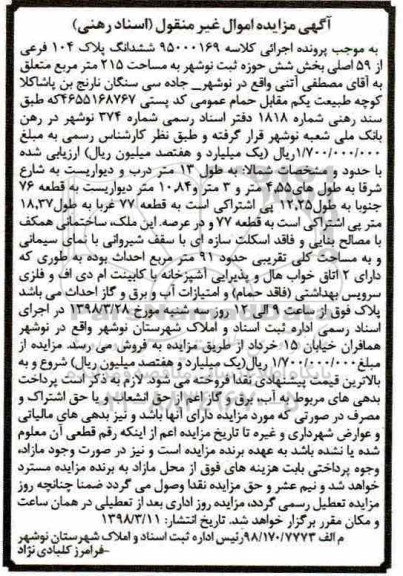 آگهی مزایده اموال غیر منقول (اسناد رهنی)
به موجب پرونده اجرائی کلاسه ۹۵۰۰۰۱۶۹ ششدانگ پلاک ۱۰۴ فرعی
از ۵۹ اصلی بخش شش حوزه ثبت نوشهر به مساحت ۲۱۵ متر مربع متعلق
به آقای مصطفی آتنی واقع در نوشهر_ جاده سی سنگان نارنج بن پاشاکلا
کوچه طبیعت یکم مقابل حمام عمومی کد پستی ۴۶۵۵۱۶۸۷۶۷که طبق
سند رهنی شماره ۱۸۱۸ دفتر اسناد رسمی شماره ۳۷۴ نوشهر در رهن
بانک ملی شعبه نوشهر قرار گرفته و طبق نظر کارشناس رسمی به مبلغ
۱/۷۰۰/۰۰۰/۰۰۰ریال (یک میلیارد و هفتصد میلیون ریال) ارزیابی شده
با حدود و مشخصات شمالا: به طول ۱۳ متر درب و دیواریست به شارع
شرقا به طول های۴,۵۵ متر و ۳ متر و۱۰,۸۴ متر دیواریست به قطعه ۷۶
جنوبا به طول۱۲,۲۵ پی اشتراکی است به قطعه ۷۷ غربا به طول۱۸,۳۷
متر پی اشتراکی است به قطعه ۷۷ و در عرصه. این ملک، ساختمانی همکف
با مصالح بنایی و فاقد اسکلت سازه ای با سقف شیروانی با نمای سیمانی
و به مساحت کلی تقریبی حدود ۹۱ متر مربع احداث بوده به طوری که
دارای ۲ اتاق خواب هال و پذیرایی آشپزخانه با کابینت ام دی اف و فلزی
سرویس بهداشتی (فاقد حمام) و امتیازات آب و برق و گاز احداث می باشد
پلاک فوق از ساعت ۹ الی ۱۲ روز سه شنبه مورخ ۱۳۹۸/۳/۲۸ در اجرای
اسناد رسمی اداره ثبت اسناد و املاک شهرستان نوشهر واقع در نوشهر
همافران خیابان ۱۵ خرداد از طریق مزایده به فروش می رسد. مزایده از
مبلغ۱/۷۰۰/۰۰۰/۰۰۰ ریال(یک میلیارد و هفتصد میلیون ریال) شروع و به
بالاترین قیمت پیشنهادی نقدا فروخته می شود. لازم به ذکر است پرداخت
بدهی های مربوط به آب، برق و گاز اعم از حق انشعاب و یا حق اشتراک و
مصرف در صورتی که مورد مزایده دارای آنها باشد و نیز بدهی های مالیاتی
و عوارض شهرداری و غیره تا تاریخ مزایده اعم از اینکه رقم قطعی آن معلوم
شده یا نشده باشد به عهده برنده مزایده است و نیز در صورت وجود مازاد،
وجوه پرداختی بابت هزینه های فوق از محل مازاد به برنده مزایده مسترد
خواهد شد و نیم عشر و حق مزایده نقدا وصول می گردد ضمنا چنانچه روز
مزایده تعطیل رسمی گردد، مزایده روز اداری بعد از تعطیلی در همان ساعت
و مکان مقرر برگزار خواهد شد. تاریخ انتشار: ۱۳۹۸/۳/۱۱
م الف ۹۸/۱۷۰/۷۷۷۳رئیس اداره ثبت اسناد و املاک شهرستان نوشهر
-فرامرز کلبادی نژاد